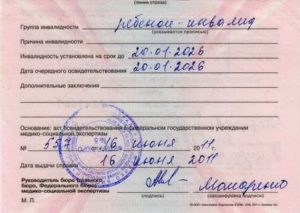 (линия отреза)
Группа инвалидности ребенок-инвалид
(указывается прописью)
Причина инвалидности
Инвалидность установлена на срок до 20.01.2026
Дата очередного освидетельствования 20.01.2026
Дополнительные заключения
Основание: акт освидетельствования в федеральном государственном учреждении
медико-социальной экспертизы
№ 557 16 июня 2011 г.
Дата выдачи справки 16 июня 2011
Руководитель бюро (главного
бюро, Федерального бюро)
медико-социальной экспертизы
(подпись) (расшифровка подписи)
М. П.